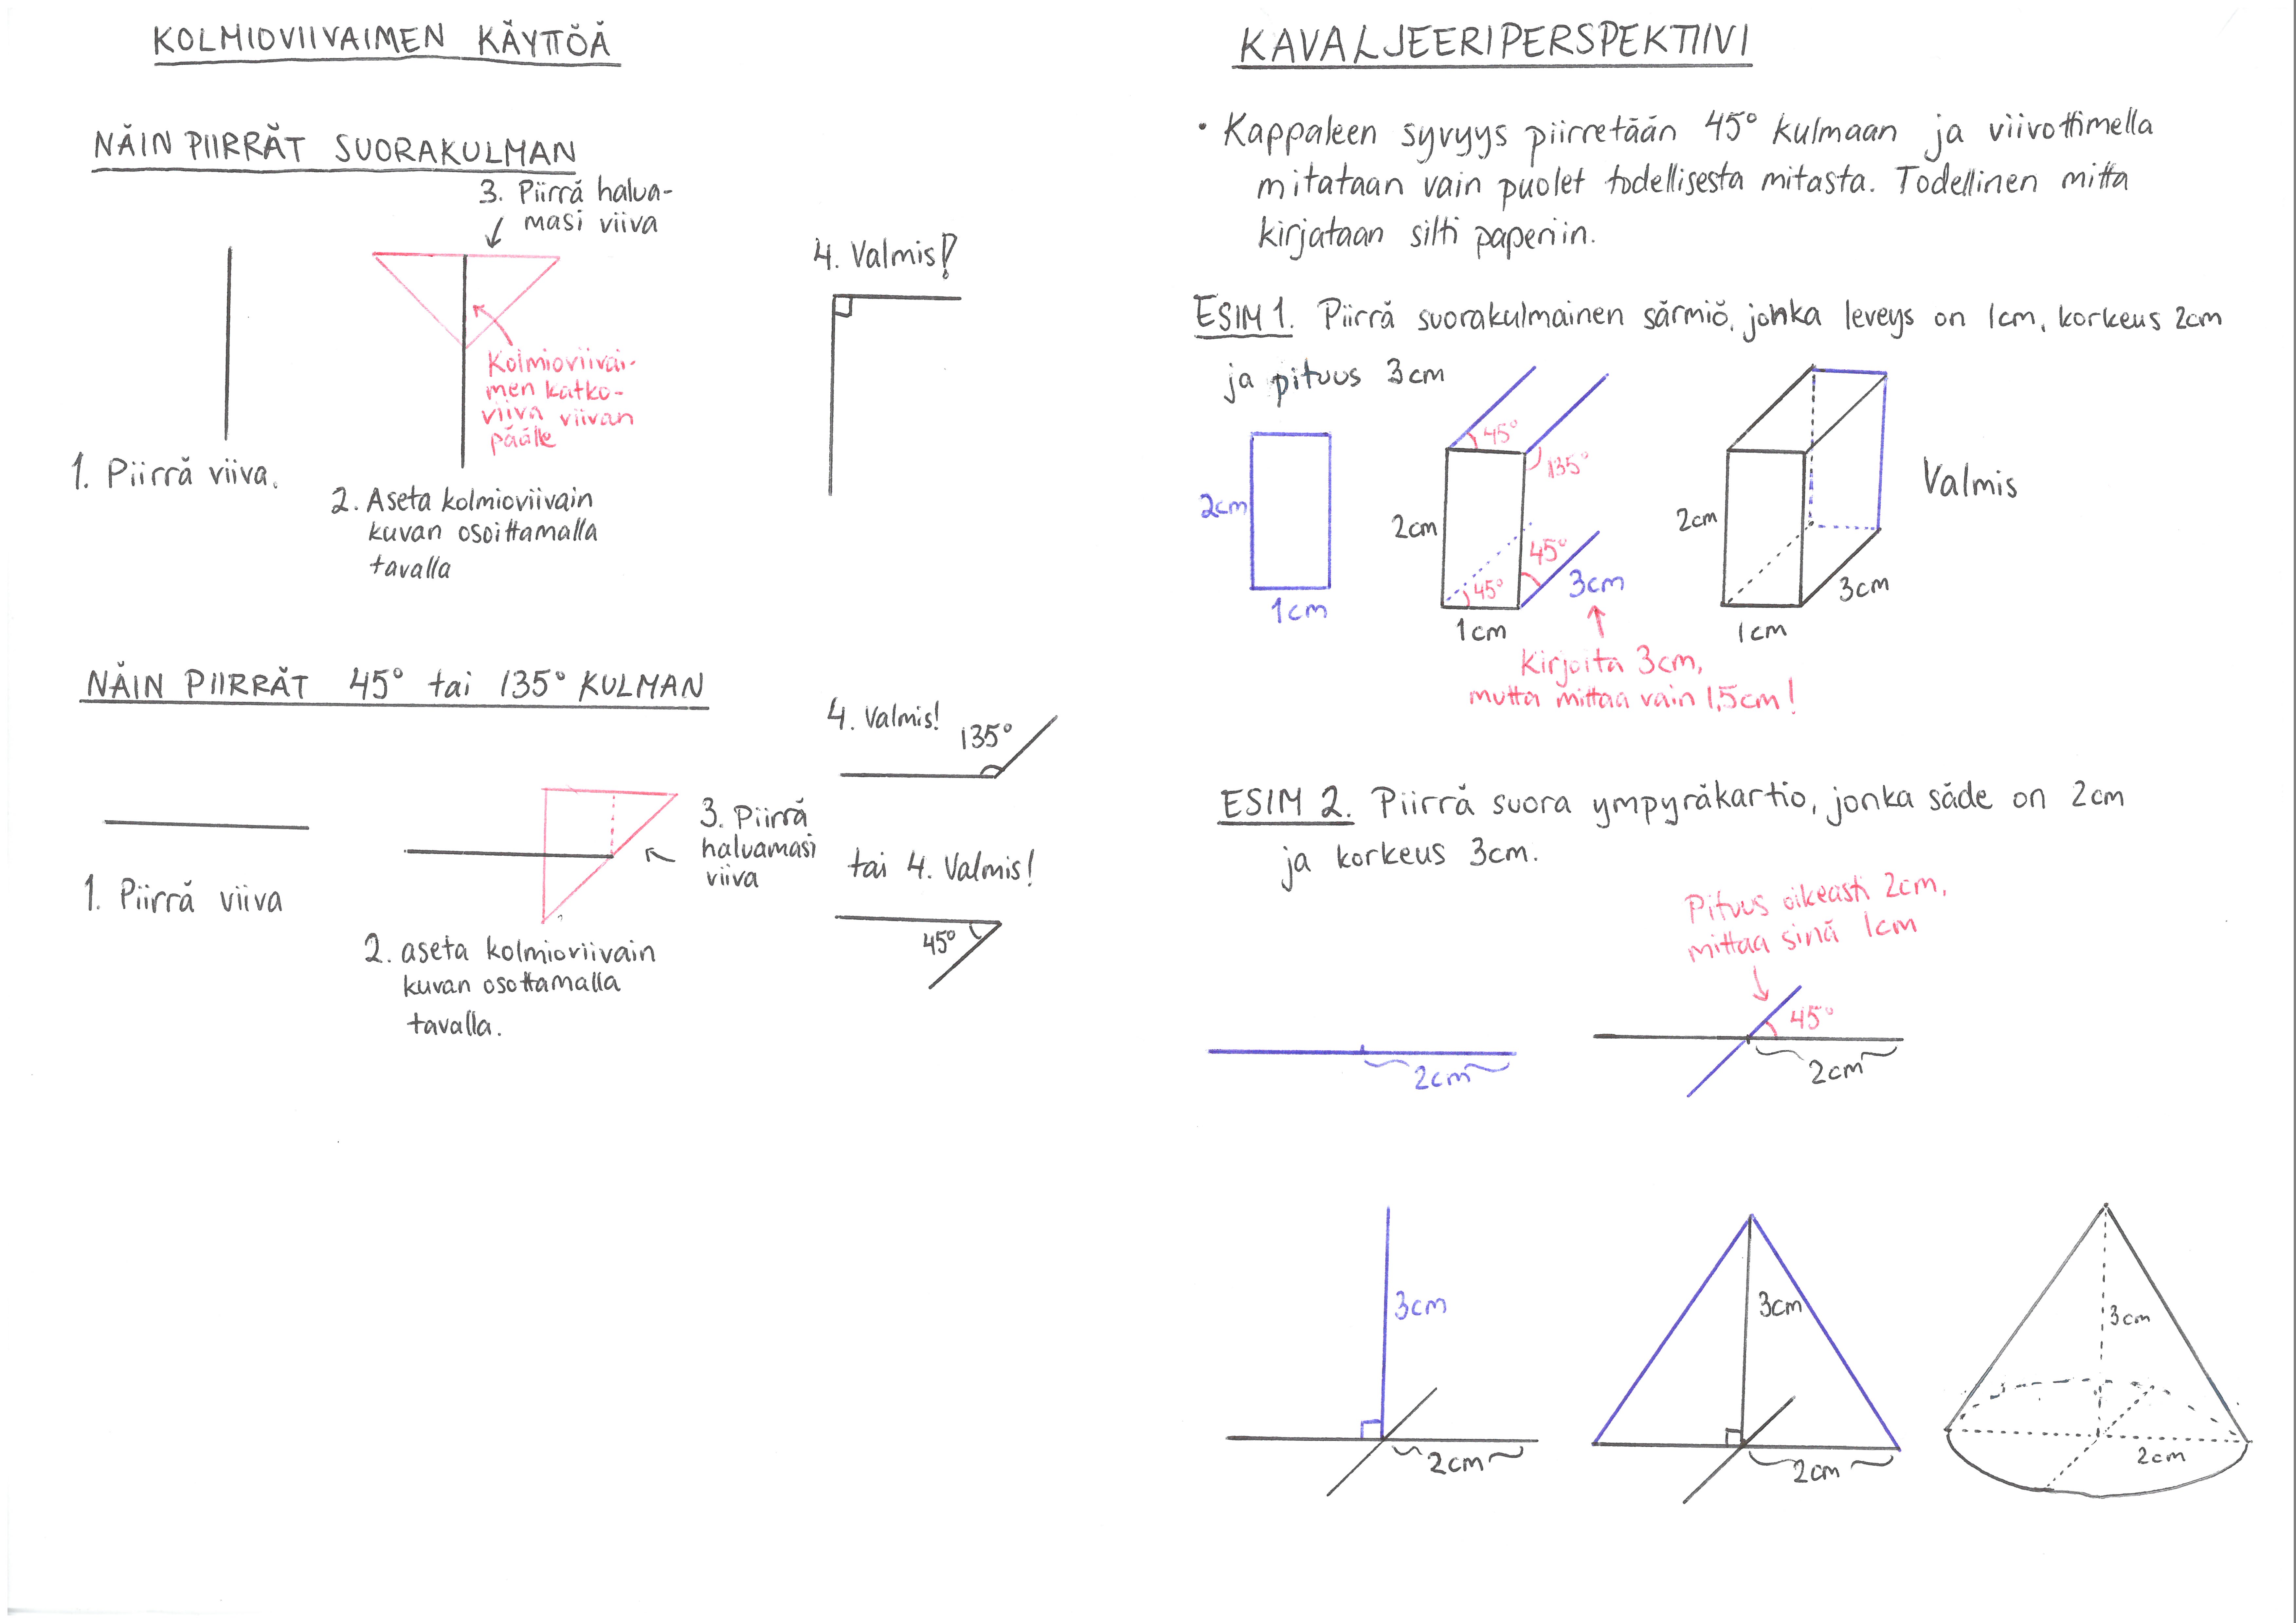 KOLMIOVIIVAIMEN KÄYTTÖÄ
NÄIN PIIRRÄT SUORAKULMAN
3. Piirrä halua-
masi viiva
Kolmioviivai-
men katko-
viiva viivan
päälle
1. Piirrä viiva.
2. Aseta kolmioviivain
kuvan osoittamalla
tavalla
4. Valmis!
NÄIN PIIRRÄT 45° tai 135° KULMAN
1. Piirrä viiva
2. aseta kolmioviivain
kuvan osottamalla
tavalla.
3. Piirrä
haluamasi
viiva
4. Valmis!
135°
tai 4. Valmis!
45°
KAVALJEERIPERSPEKTIIVI
• Kappaleen syvyys piirretään 45° kulmaan ja viivottimella
mitataan vain puolet todellisesta mitasta. Todellinen mitta
kirjataan silti paperiin.
ESIM 1. Piirrä suorakulmainen särmiö, jonka leveys on 1cm, korkeus 2cm
ja pituus 3cm
2cm
1cm
45°
135°
2cm
45°
45°
3cm
1cm
Kirjoita 3cm,
mutta mittaa vain 1,5cm!
2cm
3cm
1cm
Valmis
ESIM 2. Piirrä suora ympyräkartio, jonka säde on 2cm
ja korkeus 3cm.
2cm
Pituus oikeasti 2cm,
mittaa sinä 1cm
45°
2cm
3cm
2cm
3cm
2cm
3cm
2cm